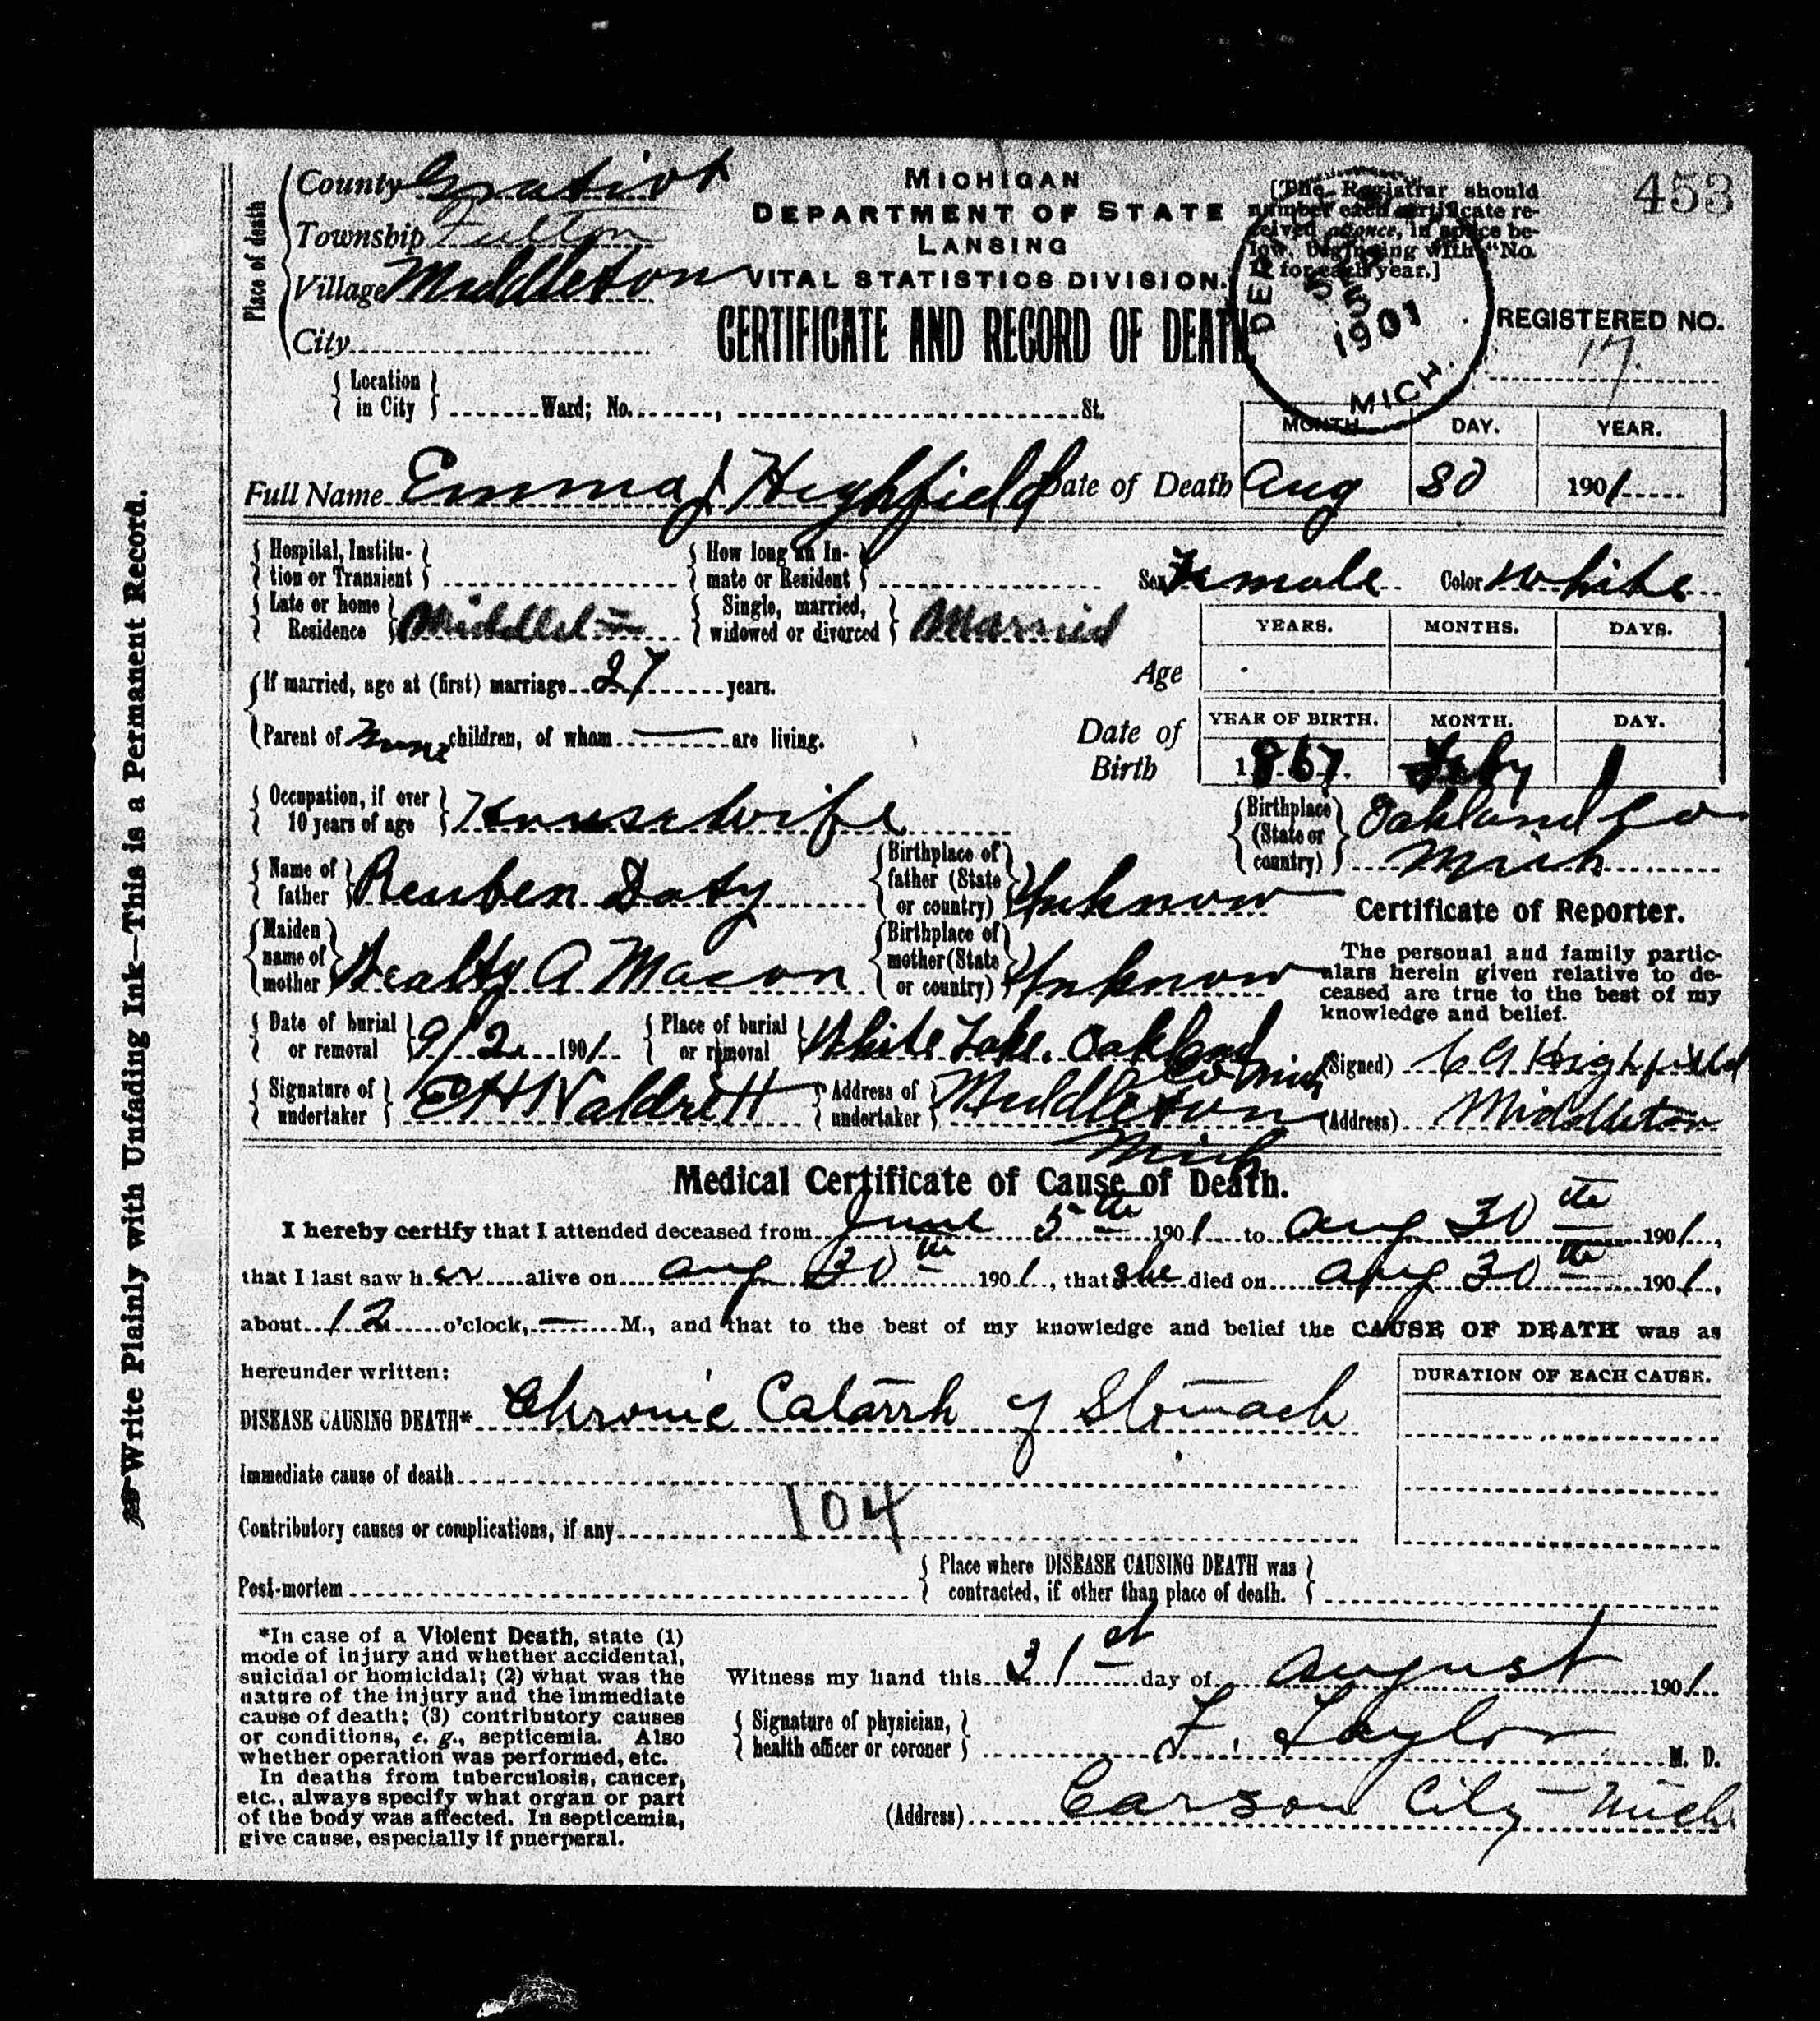 453
County Gratiot
Township Fulton
Village Middleton
City
Place of death
MICHIGAN
DEPARTMENT OF STATE
LANSING
VITAL STATISTICS DIVISION.
CERTIFICATE AND RECORD OF DEATH
[The Registrar should
number each certificate re-
ceived at once, in space be-
low, beginning with "No.
1" for each year.]
1901
MICH.
REGISTERED NO.
17.
Location
in City Ward; No. , St.
MONTH DAY. YEAR.
Full Name Emma J Highfield Date of Death Aug 30 1901
Hospital, Institu-
tion or Transient
How long an In-
mate or Resident
Sex Female Color White
Late or home
Residence Middleton
Single, married,
widowed or divorced Married
YEARS. MONTHS. DAYS.
Age
If married, age at (first) marriage 27 years.
Parent of none children, of whom — are living.
YEAR OF BIRTH. MONTH. DAY.
Date of
Birth 1867 Feby 1
Occupation, if over
10 years of age Housewife
Birthplace
(State or
country) Oakland Co
Mich
Name of
father Reuben Doty
Birthplace of
father (State
or country) Unknow
Maiden
name of
mother Wealty A Macon
Birthplace of
mother (State
or country) Unknow
Certificate of Reporter.
The personal and family partic-
ulars herein given relative to de-
ceased are true to the best of my
knowledge and belief.
Date of burial
or removal 9/2 1901
Place of burial
or removal White Lake. Oakland
Co Mich
(Signed) C A Highfield
Signature of
undertaker
Address of
undertaker Middleton
Mich
(Address) Middleton
Medical Certificate of Cause of Death.
I hereby certify that I attended deceased from June 5th 1901 to Aug 30th 1901,
that I last saw her alive on Aug 30th 1901, that she died on Aug 30th 1901,
about 12 o'clock, — M., and that to the best of my knowledge and belief the CAUSE OF DEATH was as
hereunder written:
DURATION OF EACH CAUSE.
DISEASE CAUSING DEATH* Chronic Catarrh of Stomach
Immediate cause of death
104
Contributory causes or complications, if any
Post-mortem
Place where DISEASE CAUSING DEATH was
contracted, if other than place of death.
*In case of a Violent Death, state (1)
mode of injury and whether accidental,
suicidal or homicidal; (2) what was the
nature of the injury and the immediate
cause of death; (3) contributory causes
or conditions, e. g., septicemia. Also
whether operation was performed, etc.
In deaths from tuberculosis, cancer,
etc., always specify what organ or part
of the body was affected. In septicemia,
give cause, especially if puerperal.
Witness my hand this 31st day of August 1901
Signature of physician,
health officer or coroner F. Taylor M. D.
(Address) Carson City Mich
Write Plainly with Unfading Ink—This is a Permanent Record.